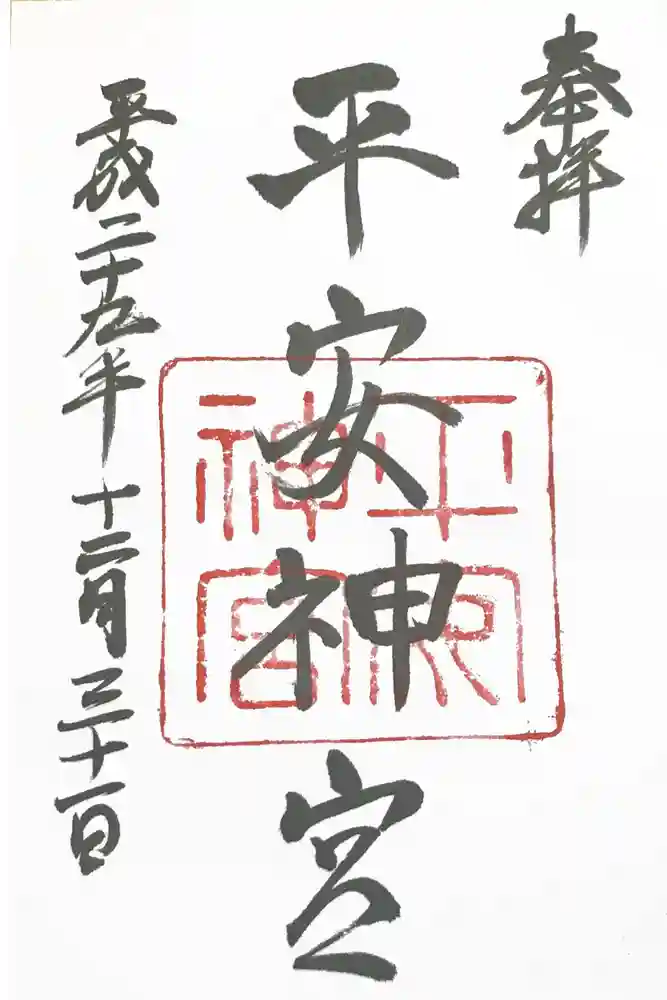 奉拝
平安神宮
平安神宮
平成二十九年十二月三十一日